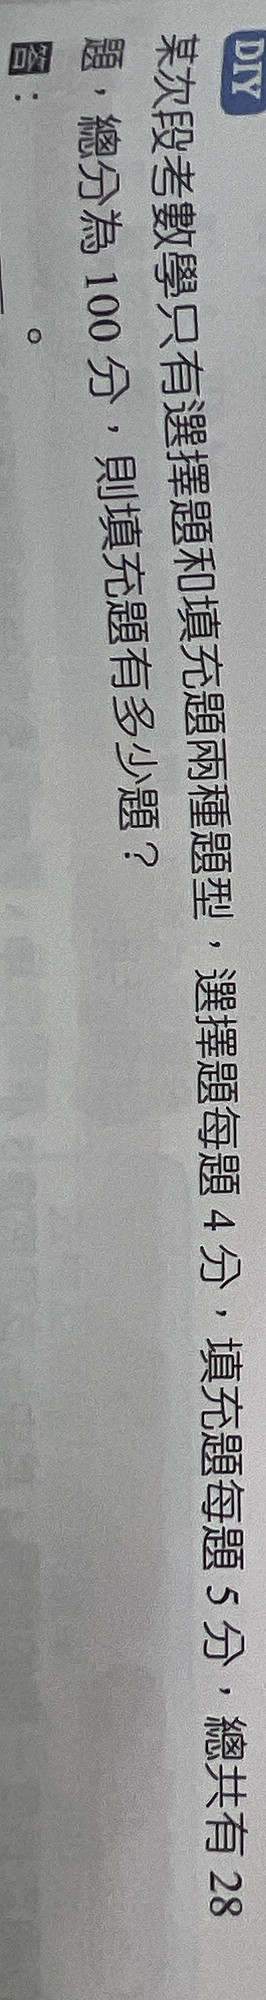 DIY
某次段考數學只有選擇題和填充題兩種題型，選擇題每題 4 分，填充題每題 5 分，總共有 28
題，總分為 100 分，則填充題有多少題？
答：
。